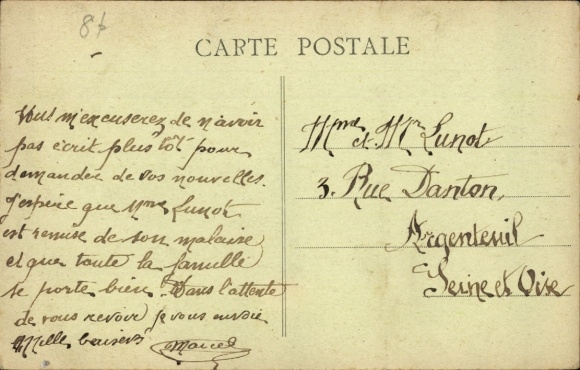 8f
CARTE POSTALE
Vous m'excuserez de n'avoir
pas écrit plus tôt pour
demander de vos nouvelles.
J'espère que Mme Lunot
est remise de son malaise
et que toute la famille
se porte bien. Dans l'attente
de vous revoir je vous envoie
Mille baisers Marcel
Mme et Mr Lunot
3. Rue Danton,
Argenteuil
Seine et Oise